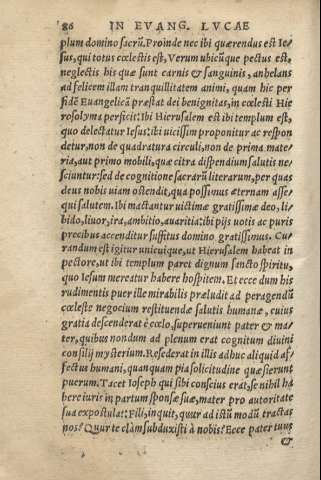 86 IN EVANG. LVCAE
plum domino sacrũ. Proinde nec ibi quærendus est Ie⸗
sus, qui totus cœlestis est, Verum ubicũque pectus est,
neglectis his quæ sunt carnis & sanguinis, anhelans
ad felicem illam tranquillitatem animi, quam hic per
fidẽ Euangelicã præstat dei benignitas, in cœlesti Hie
rosolyma perficit: Ibi Hierusalem est ibi templum est,
quo delectatur Iesus: ibi uicissim proponitur ac respon
detur, non de quadratura circuli, non de prima mate⸗
ria, aut primo mobili, quæ citra dispendium salutis ne⸗
sciuntur: sed de cognitione sacrarũ literarum, per quas
deus nobis uiam ostendit, qua possimus æternam asse⸗
qui salutem. Ibi mactantur uictimæ gratissimæ deo, li⸗
bido, liuor, ira, ambitio, auaritia: ibi pijs uotis ac puris
precibus accenditur suffitus domino gratissimus. Cu⸗
randum est igitur unicuique, ut Hierusalem habeat in
pectore, ut ibi templum paret dignum sancto spiritu,
quo Iesum mereatur habere hospitem. Et ecce dum his
rudimentis puer ille mirabilis præludit ad peragendũ
cœleste negocium restituendæ salutis humanæ, cuius
gratia descenderat è cœlo, superueniunt pater & ma⸗
ter, quibus nondum ad plenum erat cognitum diuini
consilij mysterium. Resederat in illis adhuc aliquid af⸗
fectus humani, quanquam pia solicitudine quæsierunt
puerum. Tacet Ioseph qui sibi conscius erat, se nihil ha
bere iuris in partum sponsæ suæ, mater pro autoritate
sua expostulat: Fili, inquit, quur ad istũ modũ tractas
nos? Quur te clàm subduxisti à nobis? Ecce pater tuus
&